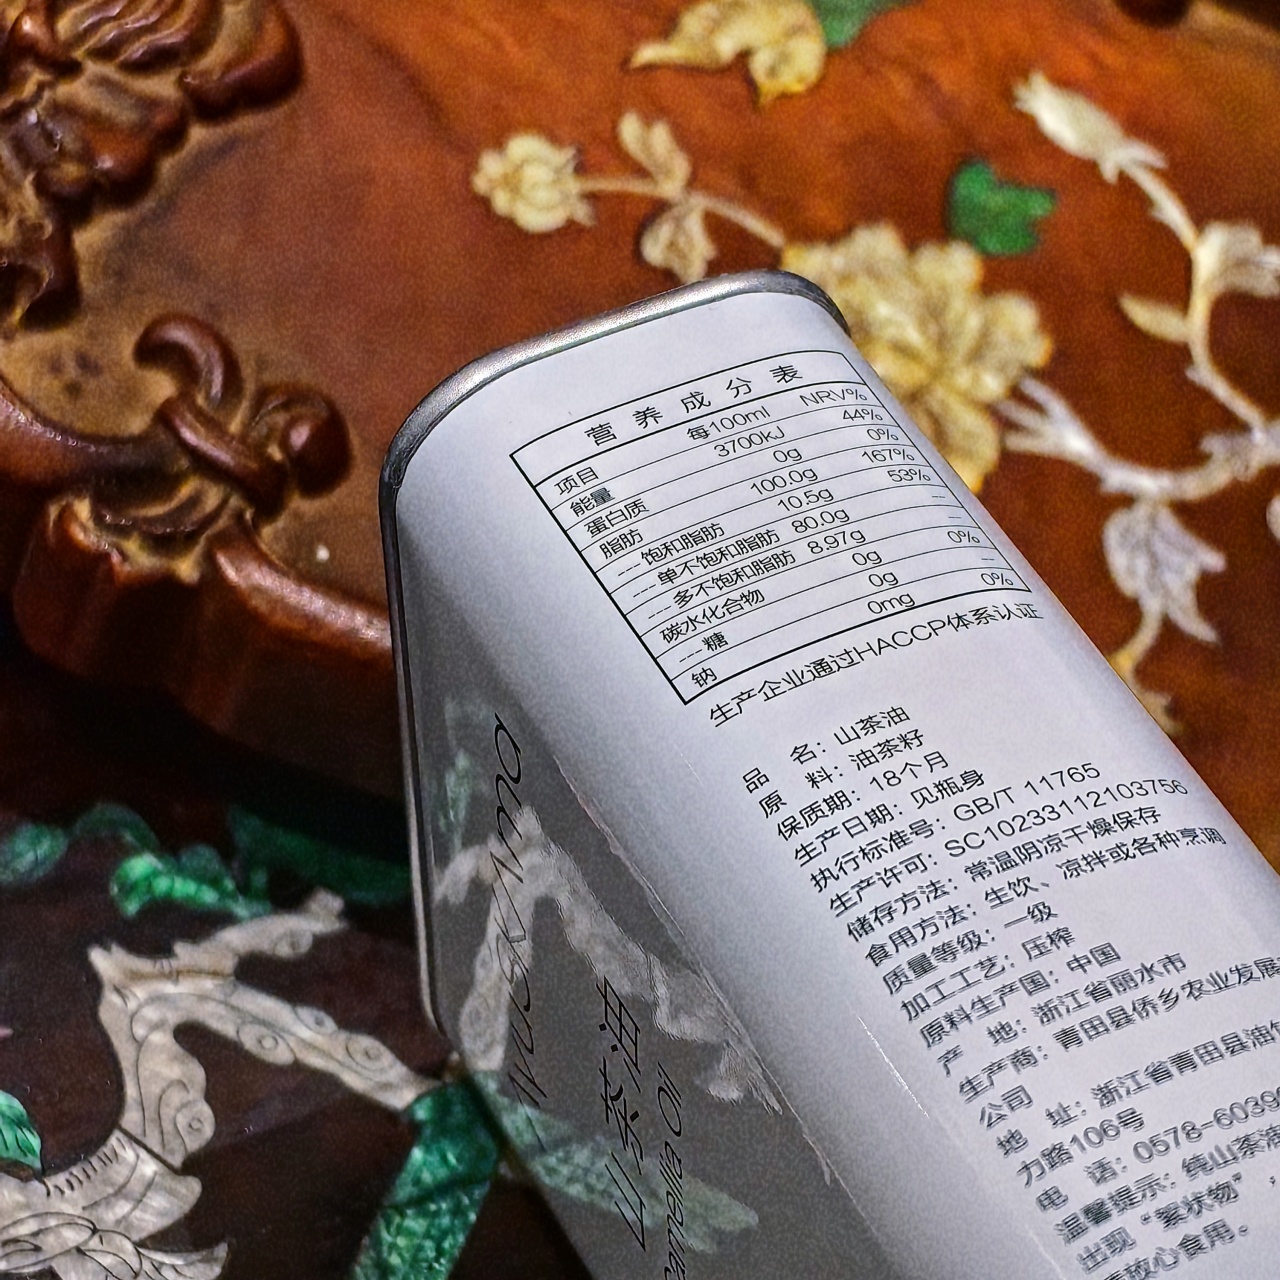 营养成分表
项目 每100ml NRV%
能量 3700kJ 44%
蛋白质 0g 0%
脂肪 100.0g 167%
---饱和脂肪 10.5g 53%
---单不饱和脂肪 80.0g ---
---多不饱和脂肪 8.97g ---
碳水化合物 0g 0%
---糖 0g ---
钠 0mg 0%
生产企业通过HACCP体系认证
品 名：山茶油
原 料：油茶籽
保质期：18个月
生产日期：见瓶身
执行标准号：GB/T 11765
生产许可：SC10233112103756
储存方法：常温阴凉干燥保存
食用方法：生饮、凉拌或各种烹调
质量等级：一级
加工工艺：压榨
原料生产国：中国
产 地：浙江省丽水市
生产商：青田县侨乡农业发展
公司
地 址：浙江省青田县油竹
力路106号
电 话：0578-6039
温馨提示：纯山茶油
出现“絮状物”，
放心食用。
山茶油